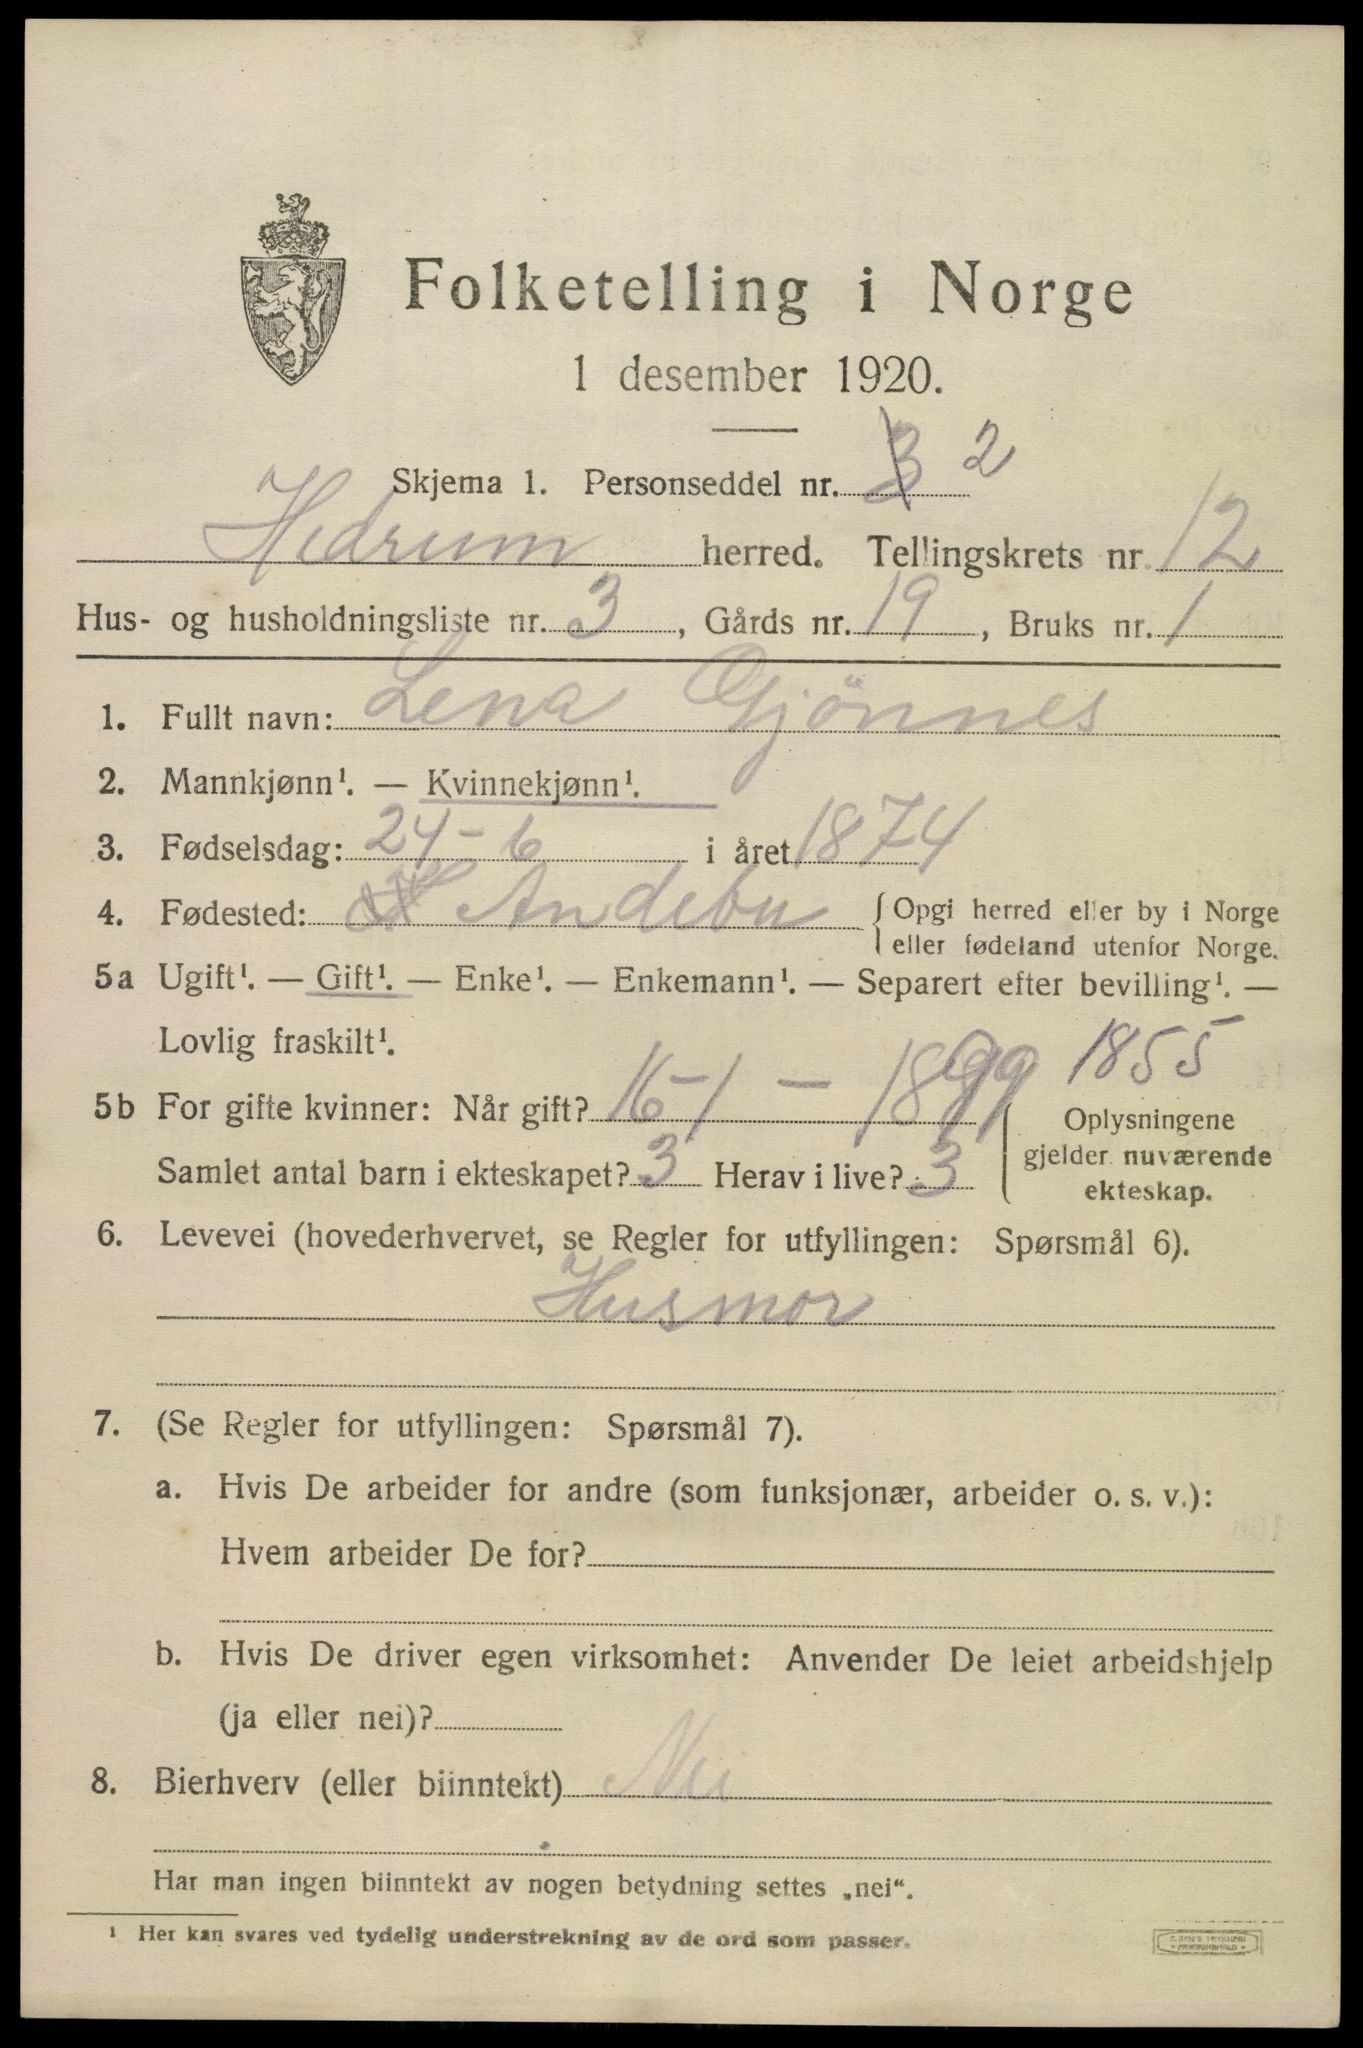 Folketelling i Norge
1 desember 1920.
Skjema 1. Personseddel nr. 3 2
Hedrum herred. Tellingskrets nr. 12
Hus- og husholdningsliste nr. 3, Gårds nr. 19, Bruks nr. 1
1. Fullt navn: Lena Gjönnes
2. Mannkjønn¹. — Kvinnekjønn¹.
3. Fødselsdag: 24-6 i året 1874
4. Fødested: Andebu {Opgi herred eller by i Norge
eller fødeland utenfor Norge.
5a Ugift¹. — Gift¹. — Enke¹. — Enkemann¹. — Separert efter bevilling¹. —
Lovlig fraskilt¹.
1855
5b For gifte kvinner: Når gift? 16-1 — 1899
Samlet antal barn i ekteskapet? 3 Herav i live? 3
Oplysningene
gjelder nuværende
ekteskap.
6. Levevei (hovederhvervet, se Regler for utfyllingen: Spørsmål 6).
Husmor
7. (Se Regler for utfyllingen: Spørsmål 7).
a. Hvis De arbeider for andre (som funksjonær, arbeider o. s. v.):
Hvem arbeider De for?
b. Hvis De driver egen virksomhet: Anvender De leiet arbeidshjelp
(ja eller nei)?
8. Bierhverv (eller biinntekt) Nei
Har man ingen biinntekt av nogen betydning settes „nei“.
¹ Her kan svares ved tydelig understrekning av de ord som passer.